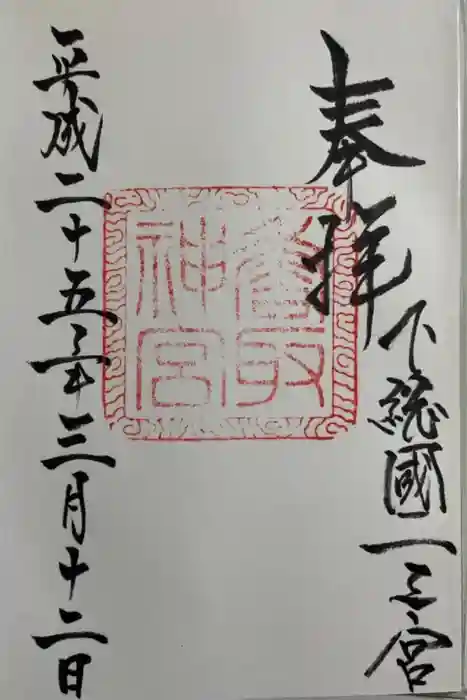 奉拝
下総國一之宮
香取
神宮
平成二十五年三月十二日